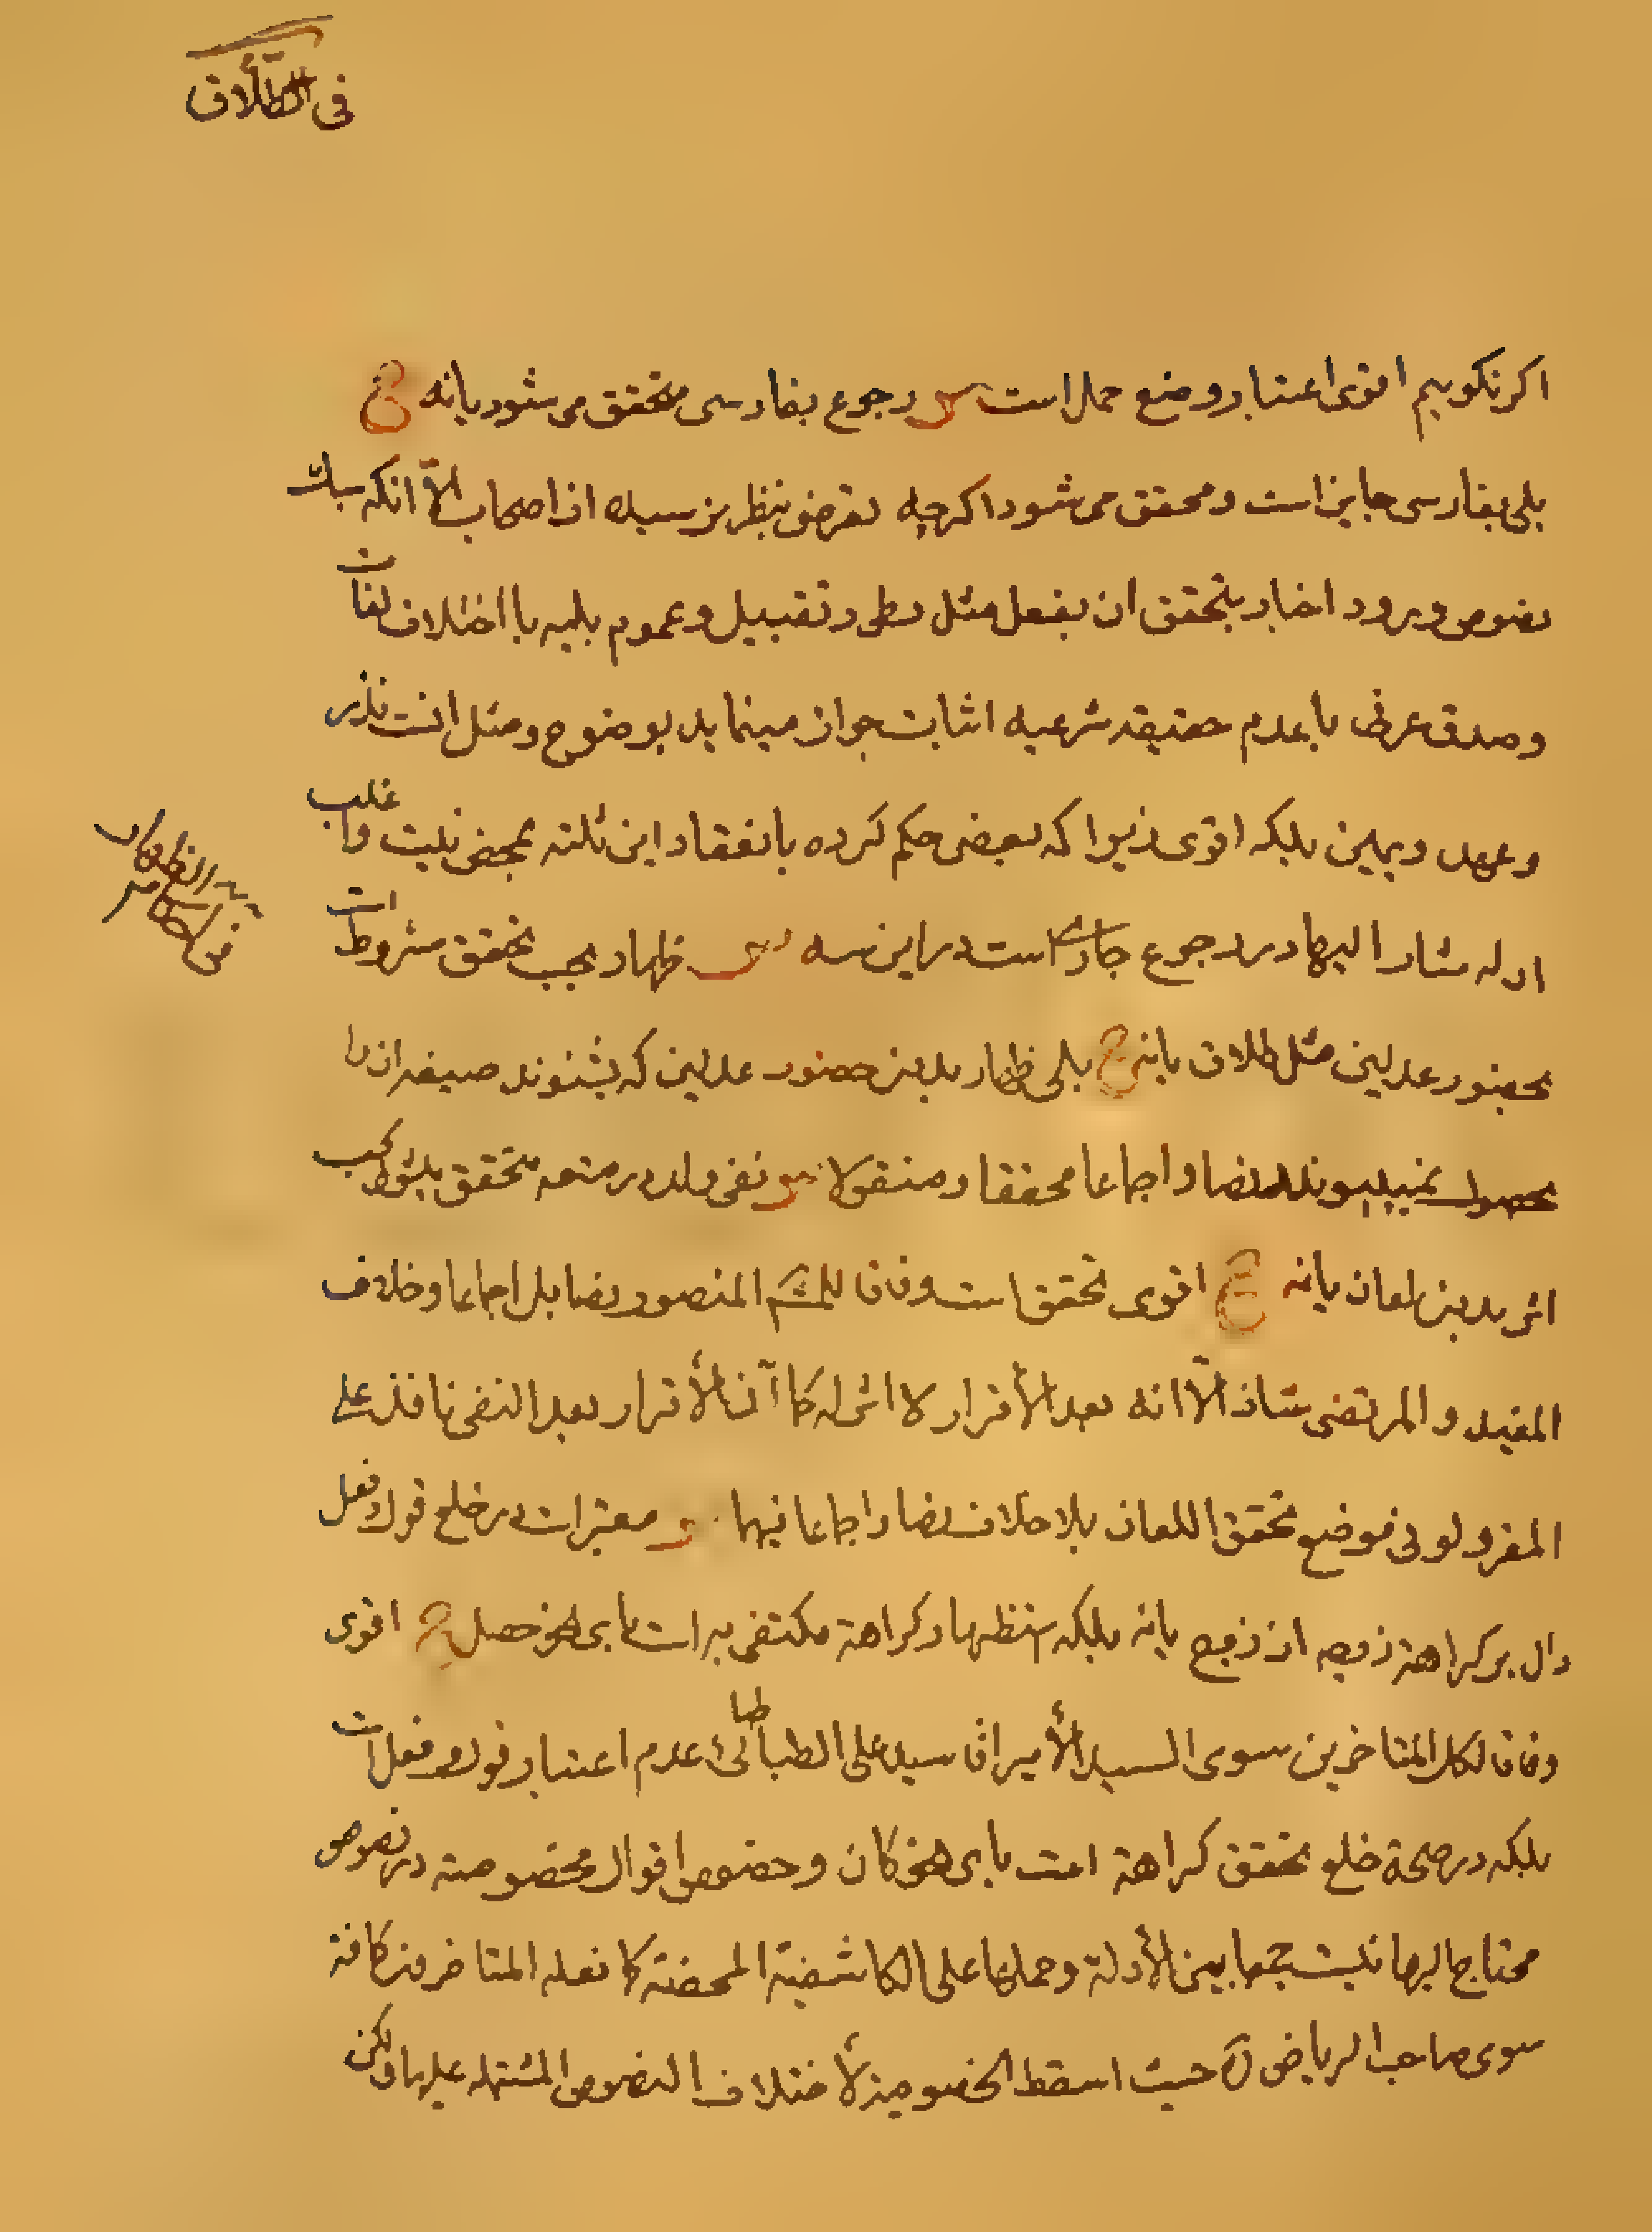 فی الطّلاق
اکر نکوییم اقوی اعتبار وضع حمل است س رجوع بفارسی متحقق می شود یا نه ج
بلی بفارسی جایز است و محقق می شود اکرچه تعرض بنظر نرسیده از اصحاب الّا انکه
نصوص ورود اخبار بتحقق ان بفعل مثل وطی و تقبیل و عموم بلیه با اختلاف لغات
و صدق عرفی با عدم حقیقه شرعیه اثبات جواز مینماید بوضوح و مثل انت نذر
و عهد و یمین بلکه اقوی زیرا که بعضی حکم کرده بانعقاد این ثلثه بمحض نیت و اغلب
ادله مشار الیها در رجوع جاری است در این سه س ظهار یجب تحقق مشروط است
بحضور عدلین مثل طلاق یا نه ج بلی ظهار بدون حضور عدلین که بشنوند صیغه ان را
بحصول نمیپیوندد نصا و اجماعا محققا و منقولا س و نفی ولد در متعه متحقق بشود
اثر بدون لعان یا نه ج اقوی تحقق است وفاقا للمشهم المنصور نصا بل اجماعا و خلاف
المفید و المرتضی شاذ الّا انه بعد الأقرار لا اثر له کما آن الأقرار بعد النفی نافذ علی
المقر ولو فی موضع تحقق اللعان بلا خلاف نصا و اجماعا فیهما س معتبر است در خلع قول و فعل
دال بر کراهة زوجه از زوج یا نه بلکه ستظهار کراهة مکتفی به است بای نحو حصل ج اقوی
وفاقا لکل المتاخرین سوی السید الأمیر اقا سید علی الطباطبائی عدم اعتبار قول و فعل است
بلکه در صحة خلع تحقق کراهة است بای نحو کان و خصوص اقوال مخصوصه در نصوص
محتاج الیها نیست جمعا بین الأدلة و حملها علی الکاشفیّة المحضة کما فعله المتاخرون کافة
سوی صاحب الریاض ره حیث اسقط الخصوصیة لأختلاف النصوص المشتمله علیها و لکن